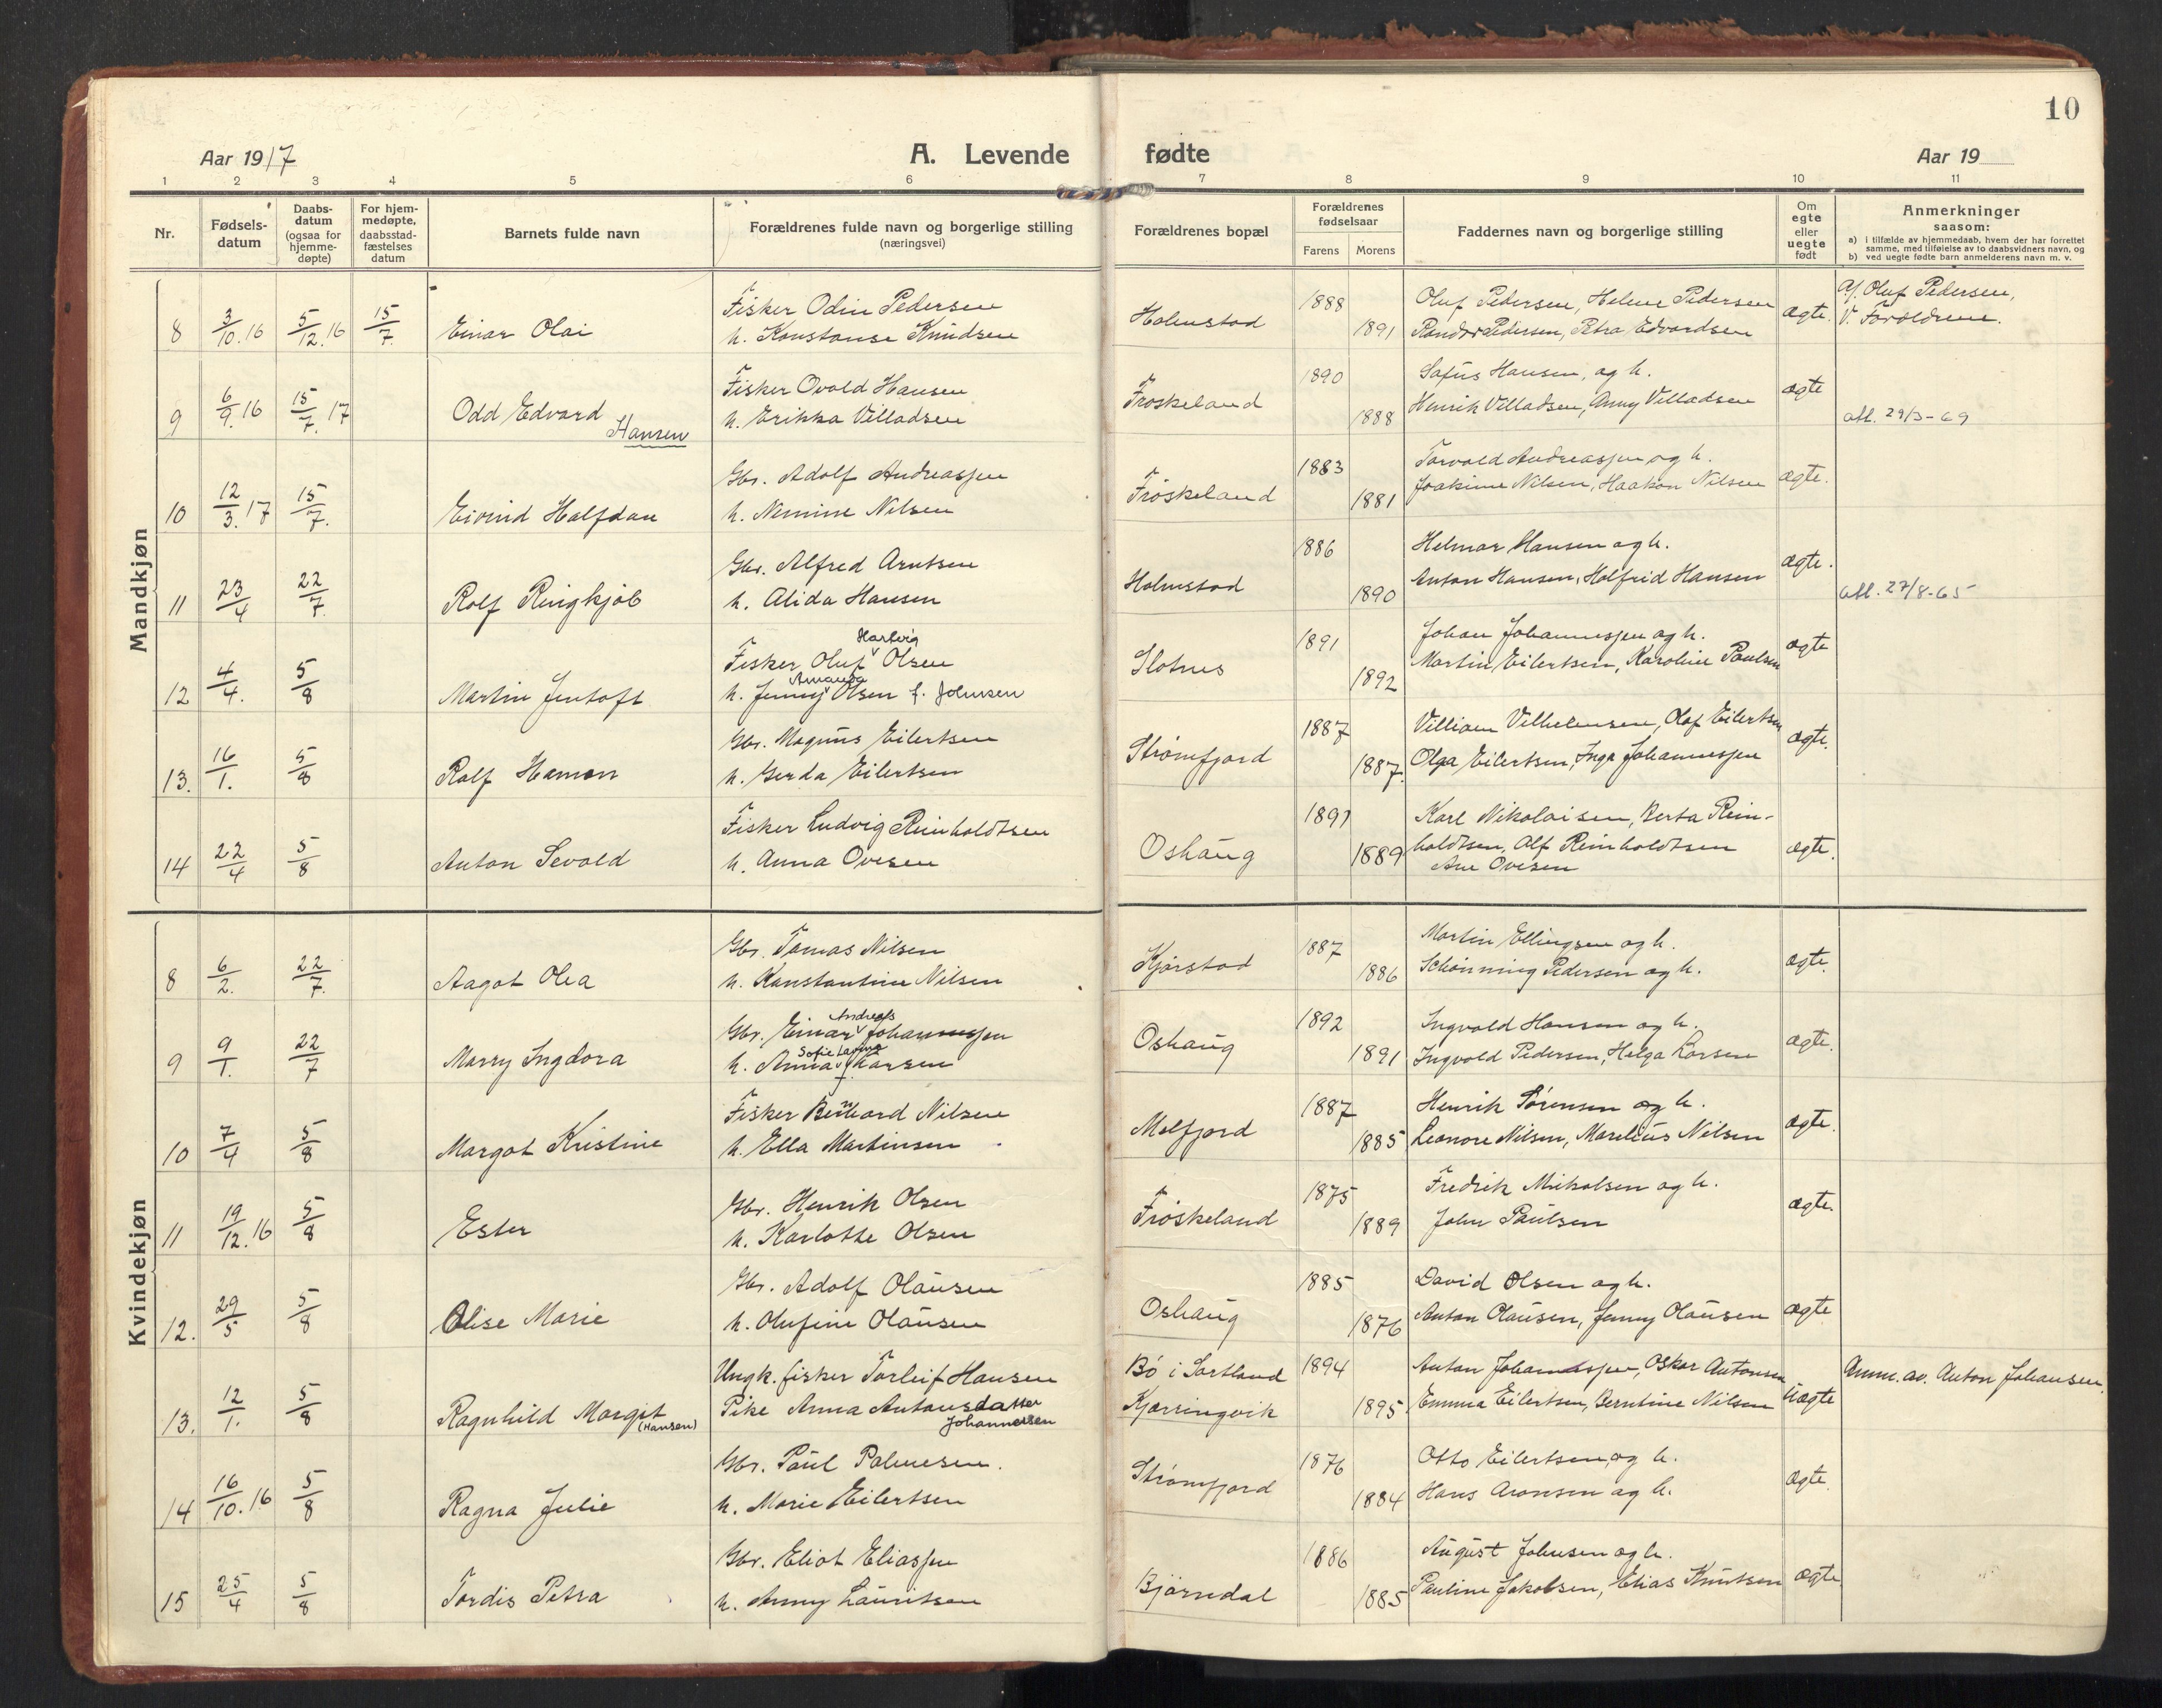 10
Aar 1917
A. Levende fødte
Aar 19
1 2 3 4 5 6 7 8 9 10 11
Nr.
Fødsels-
datum
Daabs-
datum
(ogsaa for
hjemme-
døpte)
For hjem-
medøpte,
daabsstad-
fæstelses
datum
Barnets fulde navn
Forældrenes fulde navn og borgerlige stilling
(næringsvei)
Forældrenes bopæl
Forældrenes
fødselsaar
Farens Morens
Faddernes navn og borgerlige stilling
Om
egte
eller
uegte
født
Anmerkninger
saasom:
a) i tilfælde av hjemmedaab, hvem der har forrettet
samme, med tilføielse av to daabsvidners navn, og
b) ved uegte fødte barn anmelderens navn m. v.
Mandkjøn
8 3/10.16 5/12.16 15/7. Einar Olai
Fisker Odin Pedersen
h. Konstanse Knudsen
Holmstad 1888 1891
Oluf Pedersen, Helene Pedersen
Pedersen, Petra Edvardsen
ægte.
af. Oluf Pedersen,
V. Forældrene.
9 6/9.16 15/7.17 Odd Edvard
Hansen
Fisker Ovald Hansen
h. Erikka Villadsen
Frøskeland 1890 1888
Sofus Hansen, og h.
Henrik Villadsen, Anny Villadsen
ægte
att. 29/3-69
10 12/3.17 15/7. Eivind Halfdan
Gbr. Adolf Andreassen
h. Nimine Nilsen
Frøskeland 1883 1881
Torvald Andreassen og h.
Joakime Nilsen, Haakon Nilsen
ægte.
11 23/4 22/7. Rolf Ringkjøb
Gbr. Alfred Arntsen
h. Alida Hansen
Holmstad 1886 1890
Helmar Hansen og h.
Anton Hansen, Halfrid Hansen
ægte.
att. 27/8-65
12 4/4. 5/8 Martin Jentoft
Hartvig
Fisker Oluf Olsen
Amanda
h. Jenny Olsen f. Johnsen
Slotnes 1891 1892
Johan Johannessen og h.
Martin Eilertsen, Karoline Paulsen
ægte
13. 16/1. 5/8 Rolf Hamon
Gbr. Magnus Eilertsen
h. Gerda Eilertsen
Strømfjord 1887 1887.
Villiam Vilhelmsen, Olaf Eilertsen
Olga Eilertsen, Inga Johannessen
ægte.
14 22/4 5/8 Anton Sevald
Fisker Ludvig Reinholdtsen
h. Anna Ovesen
Oshaug 1891 1889
Karl Nikolaisen, Berta Rein-
holdtsen, Alf Reinholdtsen
Ane Ovesen
ægte.
Kvindekjøn
8 6/2. 22/7. Aagot Olea
Gbr. Tomas Nilsen
h. Konstantine Nilsen
Kjørstad 1887 1886
Martin Ellingsen og h.
Schønning Pedersen og h.
ægte.
9 9/1. 22/7 Marry Ingdora
Andreas
Gbr. Einar Johannessen
Sofie
h. Anna Larsen
Oshaug 1892 1891
Ingvald Hansen og h.
Ingvold Pedersen, Helga Larsen
ægte.
10 7/4 5/8 Margot Kristine
Fisker Bernhard Nilsen
h. Ella Martinsen
Melfjord 1887 1885
Henrik Sørensen og h.
Leonore Nilsen, Marelius Nilsen
ægte.
11 19/12.16 5/8 Ester
Gbr. Henrik Olsen
h. Karlotte Olsen
Frøskeland 1875 1889
Fredrik Mikalsen og h.
John Paulsen
ægte.
12. 29/5 5/8 Olise Marie
Gbr. Adolf Olausen
h. Olufine Olausen
Oshaug 1885 1876
David Olsen og h.
Anton Olausen, Jenny Olausen
ægte
13. 12/1. 5/8 Ragnhild Margit
(Hansen)
Ungk. fisker Torleif Hansen
Pike Anna Antonsdatter
Johannessen
Bø i Sortland
Kjerringvik
1894 1895
Anton Johannessen, Oskar Antonsen
Emma Eilertsen, Berntine Nilsen
uægte
Anm. av. Anton Johansen.
14 16/10.16 5/8 Ragna Julie
Gbr. Paul Palmesen.
h. Marie Eilertsen
Strømfjord 1876 1884
Otto Eilertsen og h.
Hans Aronsen og h.
ægte.
15 25/4 5/8 Tordis Petra
Gbr. Eliot Eliassen
h. Anny Lauritsen
Bjørndal 1886 1885
August Johnsen og h.
Pauline Jakobsen, Elias Knutsen
ægte